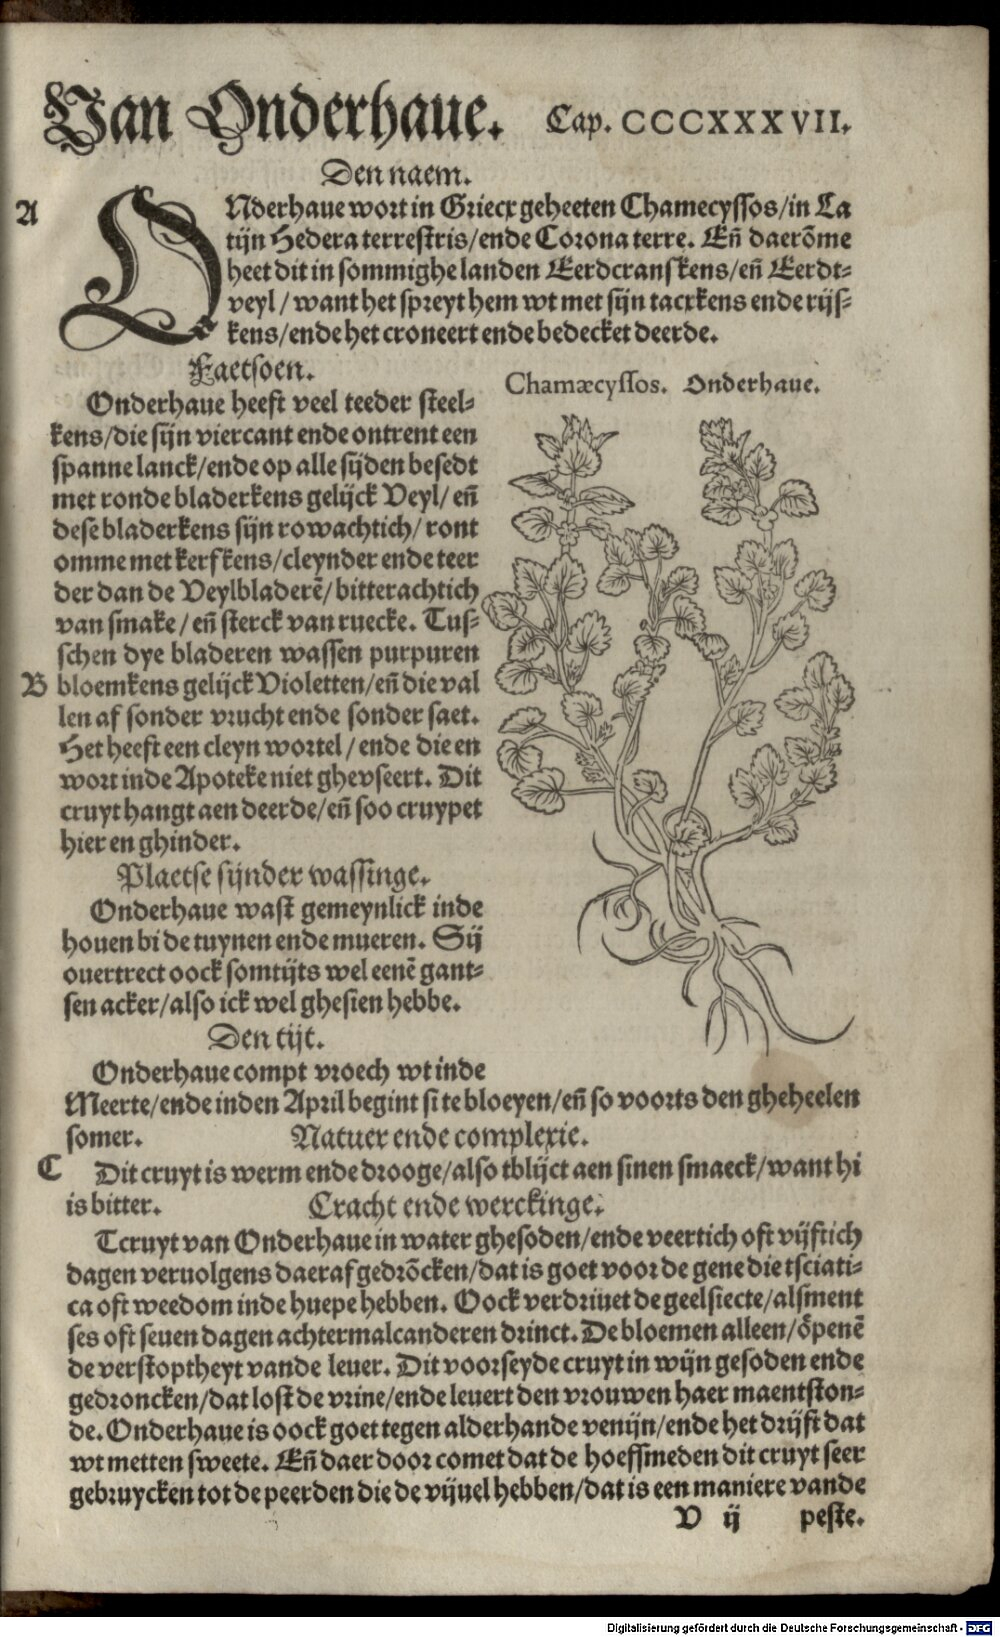 Van Onderhaue. Cap. CCCXXXVII.
Den naem.
A
ONderhaue wort in Griecx geheeten Chamecyssos/in La
tijn Hedera terrestris/ende Corona terre. Eñ daerōme
heet dit in sommighe landen Eerdcranskens/eñ Eerdt-
veyl/ want het spreyt hem wt met sijn tacxkens ende rijs-
kens/ende het croneert ende bedecket deerde.
Faetsoen.
Chamæcyssos. Onderhaue.
Onderhaue heeft veel teeder steel-
kens/die sijn viercant ende ontrent een
spanne lanck/ende op alle sijden besedt
met ronde bladerkens gelijck Veyl/ eñ
dese bladerkens sijn rowachtich/ ront
omme met kerfkens/cleynder ende teer
der dan de Veylbladerē/bitterachtich
van smake/ eñ sterck van ruecke. Tus-
schen dye bladeren wassen purpuren
B bloemkens gelijck Violetten/eñ die val
len af sonder vrucht ende sonder saet.
Het heeft een cleyn wortel/ende die en
wort inde Apoteke niet ghevseert. Dit
cruyt hangt aen deerde/eñ soo cruypet
hier en ghinder.
Plaetse sijnder wassinge.
Onderhaue wast gemeynlick inde
houen bi de tuynen ende mueren. Sij
ouertrect oock somtijts wel eenē gant-
sen acker/also ick wel ghesien hebbe.
Den tijt.
Onderhaue compt vroech wt inde
Meerte/ende inden April begint si te bloeyen/eñ so voorts den gheheelen
somer. Natuer ende complexie.
C Dit cruyt is werm ende drooge/also tblijct aen sinen smaeck/want hi
is bitter. Cracht ende werckinge.
Tcruyt van Onderhaue in water ghesoden/ende veertich oft vijftich
dagen veruolgens daeraf gedrōcken/dat is goet voor de gene die tsciati-
ca oft weedom inde huepe hebben. Oock verdriuet de geelsiecte/alsment
ses oft seuen dagen achtermalcanderen drinct. De bloemen alleen/ōpenē
de verstoptheyt vande leuer. Dit voorseyde cruyt in wijn gesoden ende
gedroncken/dat lost de vrine/ende leuert den vrouwen haer maentston-
de. Onderhaue is oock goet tegen alderhande venijn/ende het drijft dat
wt metten sweete. Eñ daer door comet dat de hoefsmeden dit cruyt seer
gebruycken tot de peerden die de vijuel hebben/dat is een maniere vande
V ij peste.
Digitalisierung gefördert durch die Deutsche Forschungsgemeinschaft - DFG